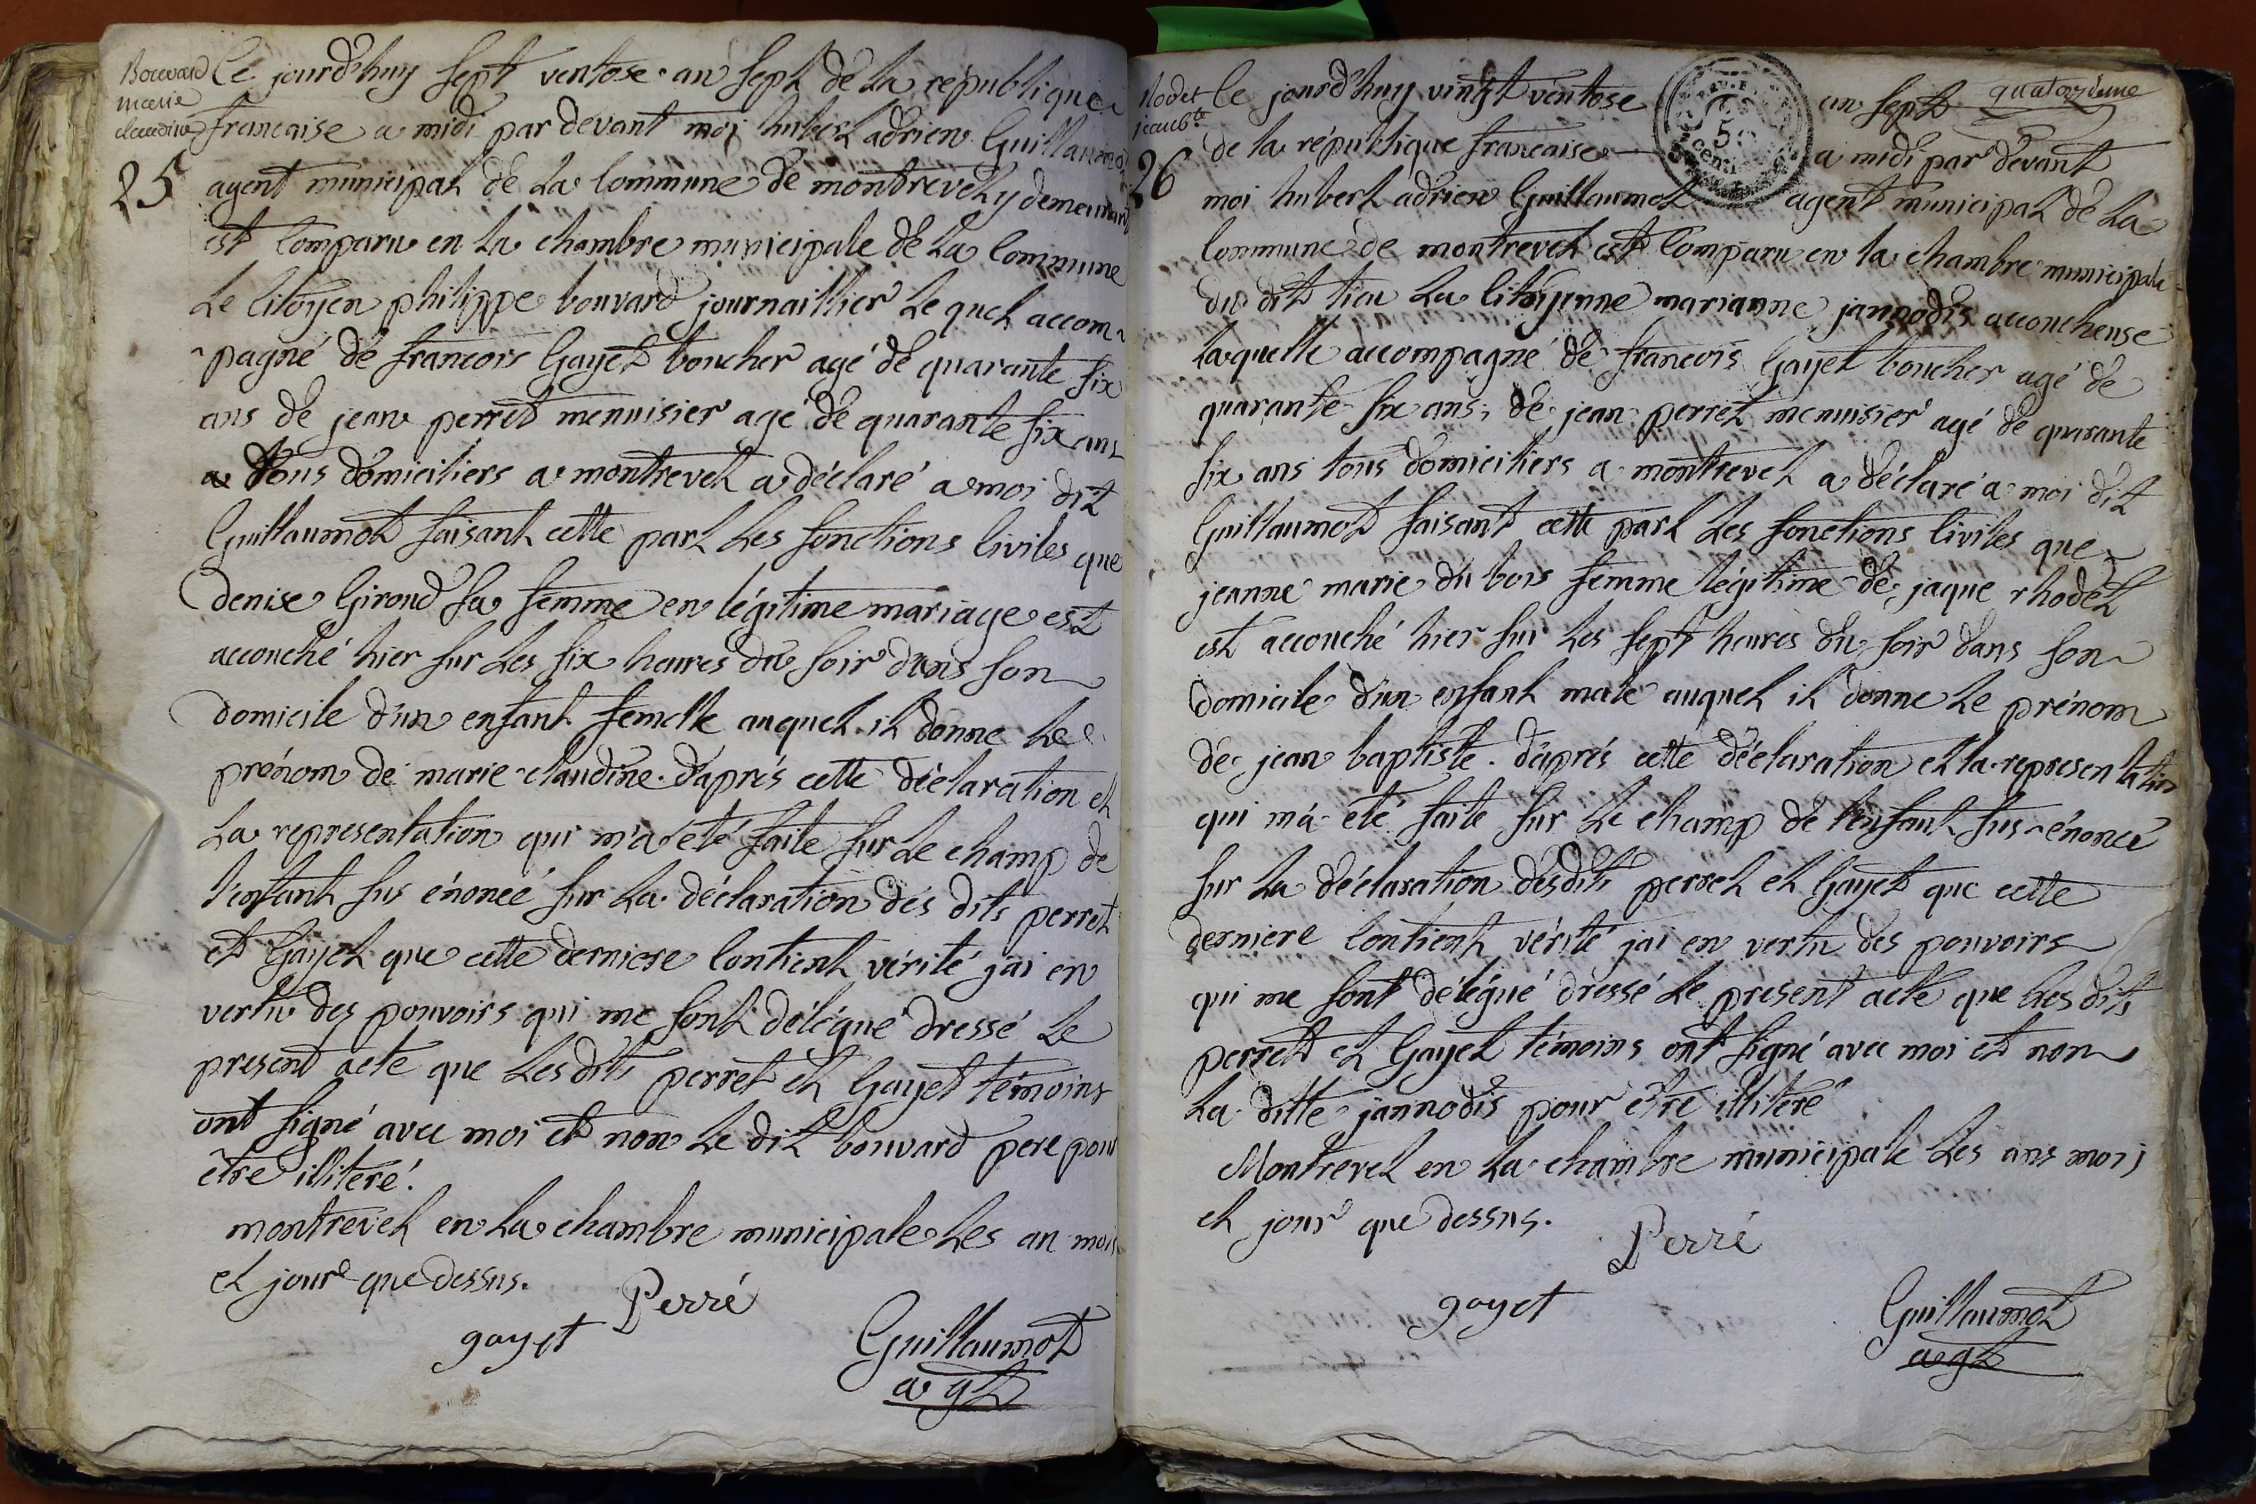 Bouvard
marie
claudine
25
Ce jourd'huy sept ventose an sept de la republique
francaise a midi par devant moi hubert adrien Guillaumot
agent municipal de la Commune de montrevel y demeurant
est Comparu en la chambre municipale de la Commune
le Citoyen philippe bouvard journaillier le quel accom-
pagné de francois Gayet boucher agé de quarante six
ans de jean perret menuisier agé de quarante six ans
tous domiciliers a montrevel a déclaré a moi dit
Guillaumot faisant cette part les fonctions Civiles que
denise Giroud sa femme en légitime mariage est
accouché hier sur les six heures du soir dans son
domicile d'un enfant femelle auquel il donne le
prénom de marie claudine. d'aprés cette déclaration et
la representation qui m'a été faite sur le champ de
l'enfant sus énoncé sur la déclaration des dits perret
et Gayet que cette derniere Contient vérité j'ai en
vertu des pouvoirs qui me sont délégué dressé le
present acte que lesdits perret et Gayet témoins
ont signé avec moi et non le dit bouvard pere pour
être illiteré.
montrevel en la chambre municipale les an mois
et jour que dessus.
Perré
gayet
Guillaumot
agt
Rodet
jean bte
26
quatorzieme
Ce jourd'huy vingt ventose an sept
de la république francaise a midi par devant
moi hubert adrien Guillaumot agent municipal de la
Commune de montrevel est Comparu en la chambre municipale
du dit lieu la Citoyenne marianne jannodis accoucheuse
laquelle accompagné de francois Gayet boucher agé de
quarante six ans, de jean perret menuisier agé de quarante
six ans tous domiciliers a montrevel a déclaré a moi dit
Guillaumot faisant cette part les fonctions Civiles que
jeanne marie du bois femme légitime de jaque rhodet
est accouché hier sur les sept heures du soir dans son
domicile d'un enfant male auquel il donne le prénom
de jean baptiste. d'aprés cette déclaration et la representation
qui m'a été faite sur le champ de l'enfant sus-énoncé
sur la déclaration desdits perret et Gayet que cette
derniere Contient vérité j'ai en vertu des pouvoirs
qui me sont délégué dressé le present acte que les dits
perret et Gayet témoins ont signé avec moi et non
la ditte jannodis pour être illiteré
Montrevel en la chambre municipale les ans mois
et jour que dessus.
Perré
gayet
Guillaumot
agt